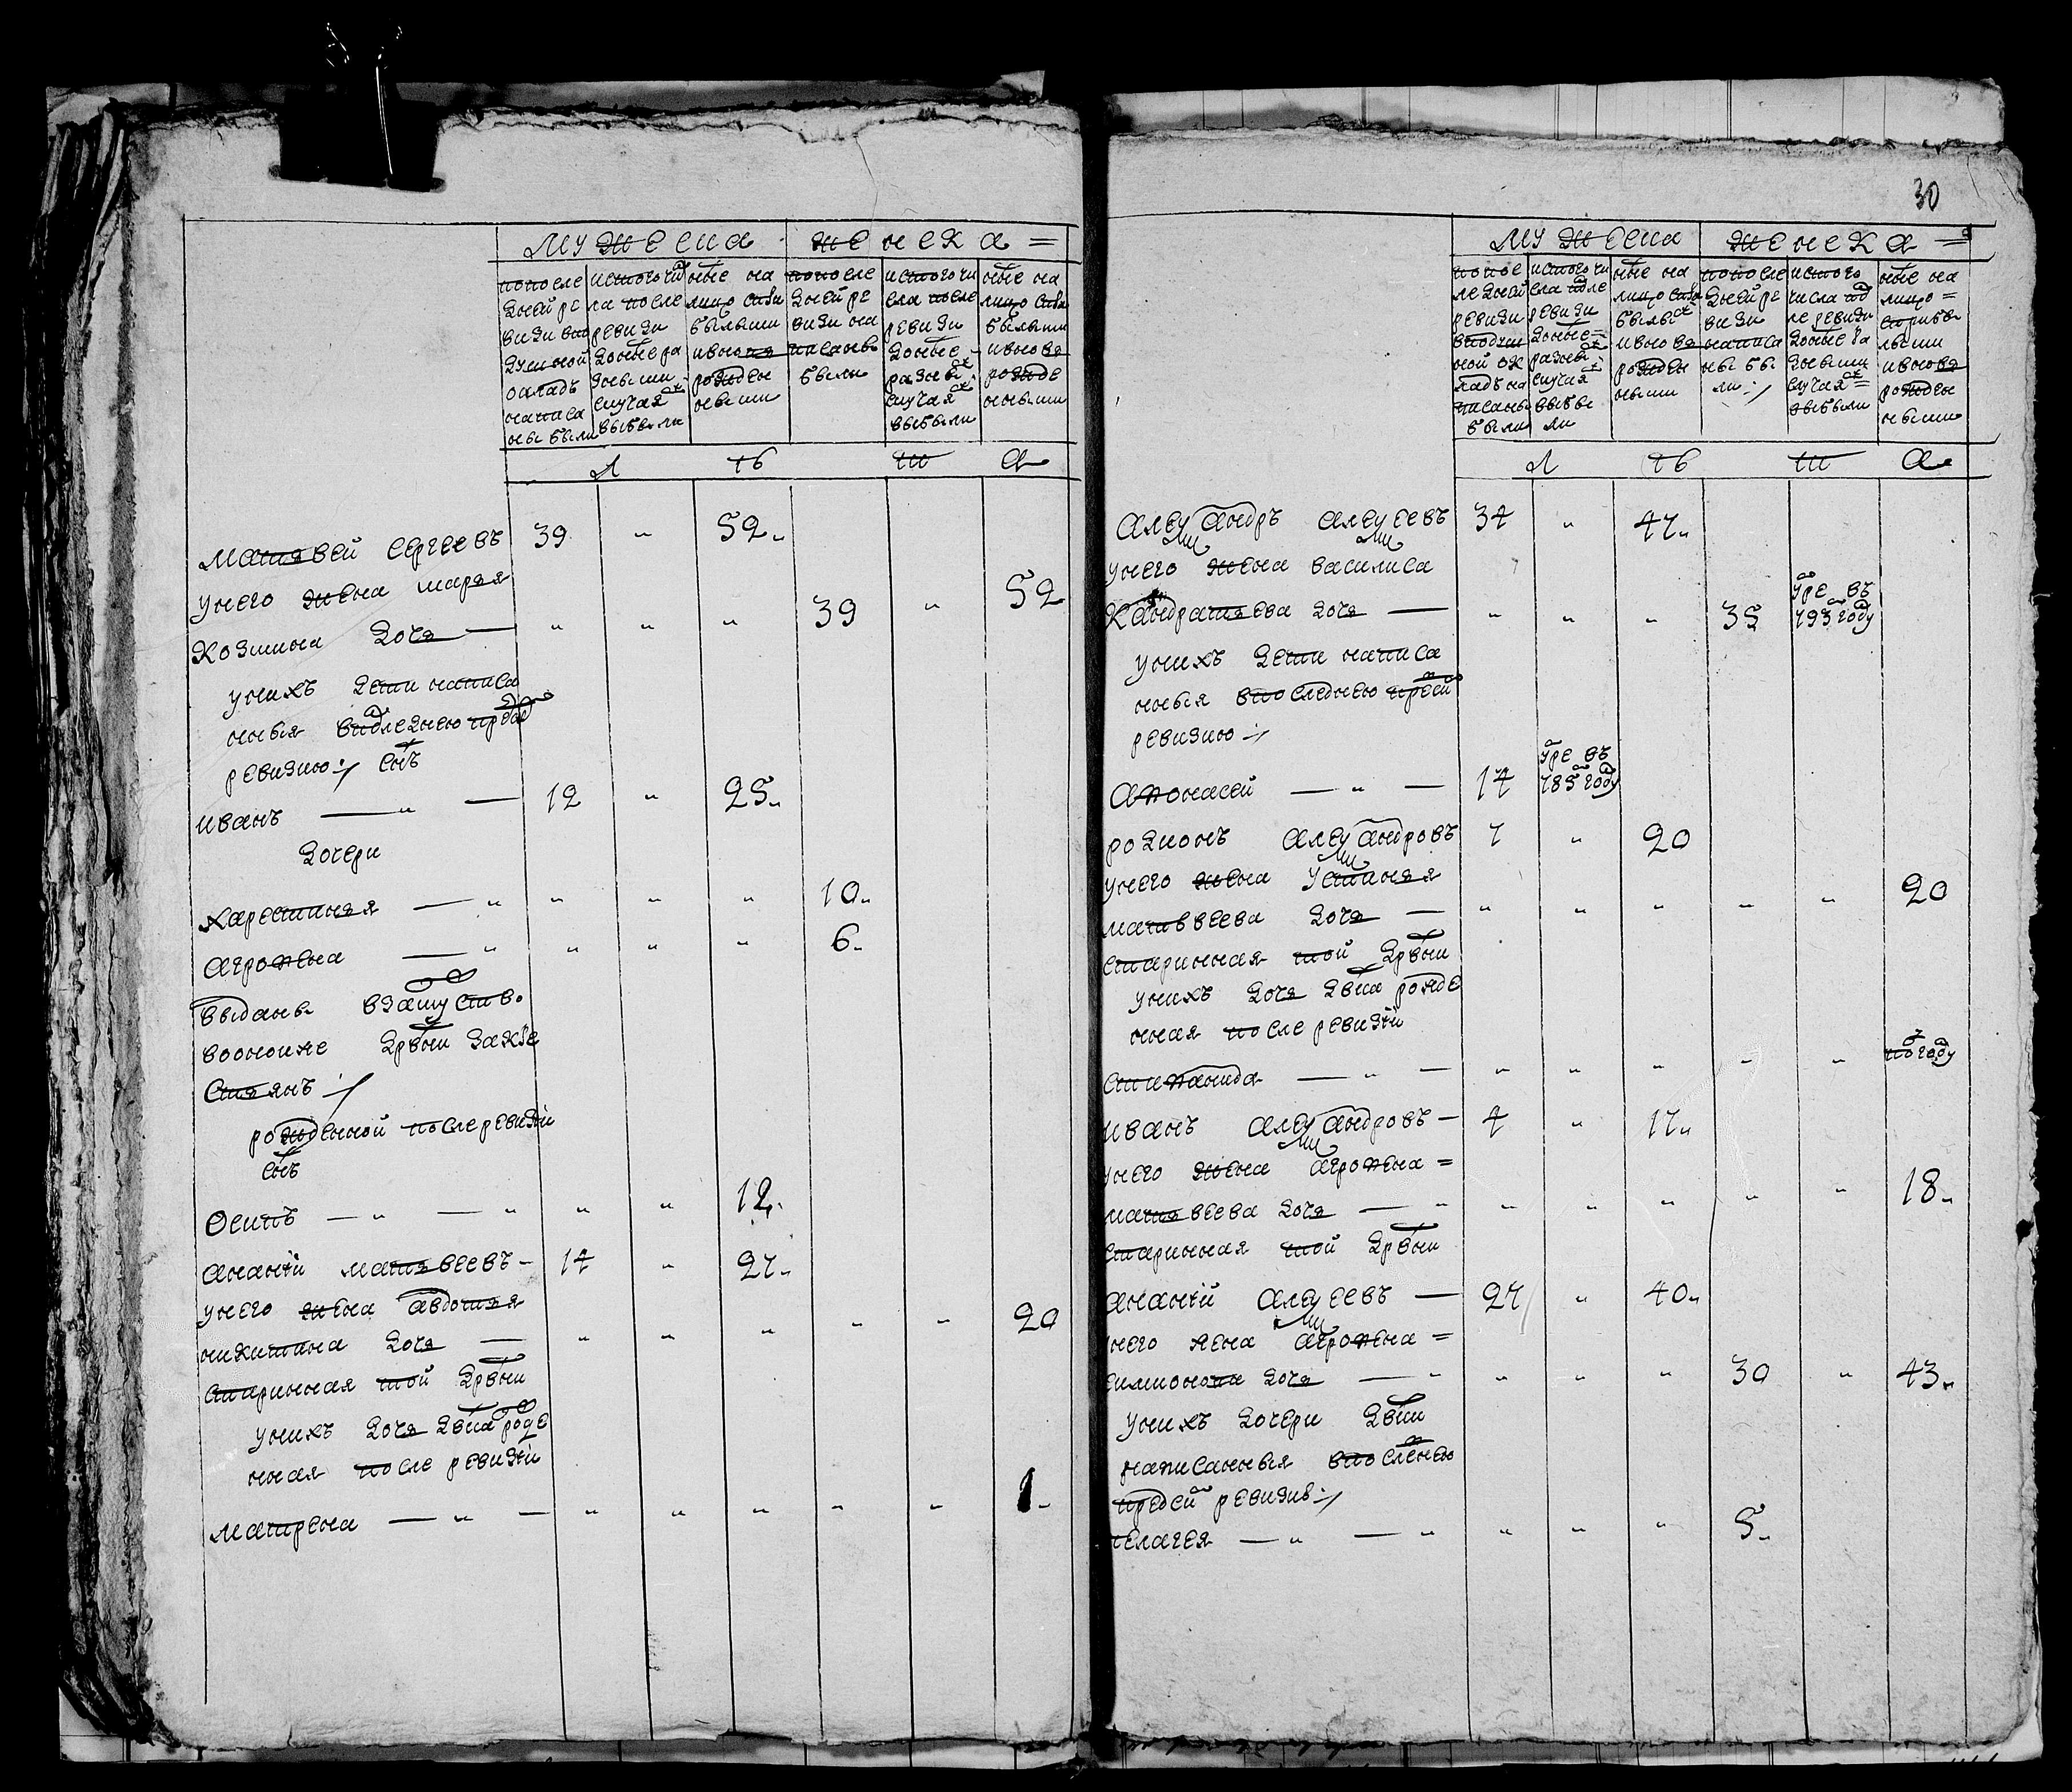 мужеска женска =
попосле
дней ре
визи впо
душной
окладъ
написа
ны были
истого чи
ла после
ревизи
зоные ра
зными
случая
выбыли
ныне на
лицо съ
былыми
ивновя
рожден
ными
попосле
дней ре
визи на
писаны
были
истого чи
сла после
ревизи
зоные
разны
случая
выбыли
ныне на
лицо съ
былыми
ивновя
рожде
нными
л тъ ж а
Матявей Сергеевъ 39 „ 52„
унего жена Маря
Козмина дочя — „ „ „ 39 „ 52
унихъ дети написа
ныя впоследнею пред
ревизию :/ сынъ
Иванъ — „ — 12 „ 25„
дочери
Харестиная — „ „ „ „ 10„
Агропена — „ „ „ „ 6„
выданы взамуство
вооноиже дрвни закре
стянъ :/
рожденной после ревизiи
сынъ
Осипъ — „ — „ „ „ 12„
Ананiй Матявеевъ — 14 „ 27„
унего жена Авдотия
Никитина дочя — „ „ „ „ „ 20
старинная той дрвни
унихъ дочя двка роде
ная после ревизiи
Матрена — „ — „ „ „ „ „ 1„
30
мужеска женска =
попосе
ле дней
ревизи
вподуш
ной ок
ладъ на
писаны
были
истого чи
сла после
ревизи
зоные =
разны
случая
выбы
ли
ныне на
лицо съ
былы
ивновя
рожден
ными
попосле
дней ре
визи
написа
ны бы
ли :/
истого
числа по
ле ревизи
зоные ра
зными
случая =
выбыли
ныне на
лицо =
съприбы
лыми
ивновя
рожден
ными
л тъ ж а
Александръ Алексеевъ 34 „ 47„
унего жена Василиса
Кандратява дочя — „ „ „ 35 умре въ 793 году
унихъ дети написа
ныя впоследнею пред сей
ревизию :/
Апонасей — „ — 14 умре въ 785 году
Родионъ Александровъ 7 „ 20
унего жена Устиная
Матьввеева дочя — „ „ „ „ „ 20
старинная той дрвни
унихъ дочя двка рожде
ная после ревизiи
Степанида — „ — „ „ „ „ „ по году
Иванъ Александровъ — 4 „ 17„
унего жена Агропена =
Матявеева дочя — „ „ „ „ „ „ 18„
старинная той дрвни
Ананiй Алексеевъ — 27 „ 40„
унего жена Агропена =
Симионона дочя — „ „ „ „ 30 „ 43„
унихъ дочери двки
написанныя впоследнею
предсей ревизие :/
Пелагея — „ — „ „ „ „ 5„